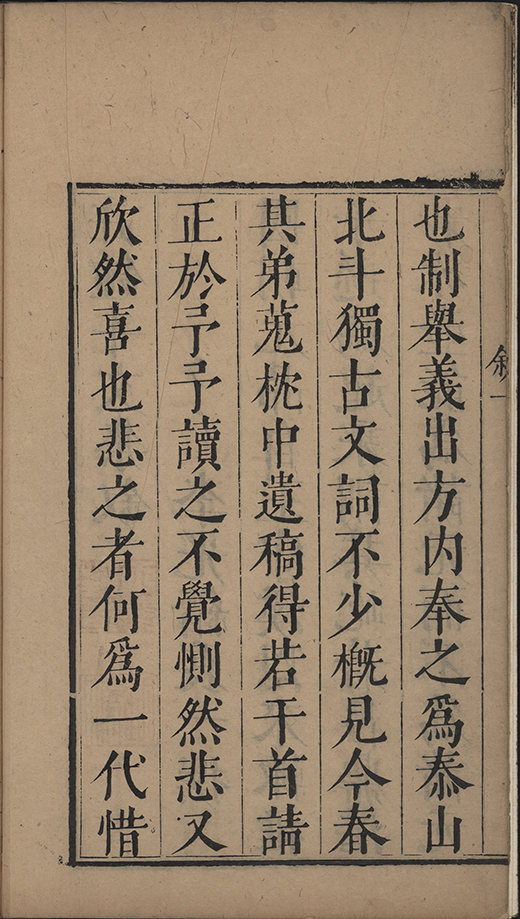 敘一
也制舉義出方内奉之爲泰山
北斗獨古文詞不少槪見今春
其弟蒐枕中遺稿得若干首請
正於予予讀之不覺惻然悲又
欣然喜也悲之者何爲一代惜